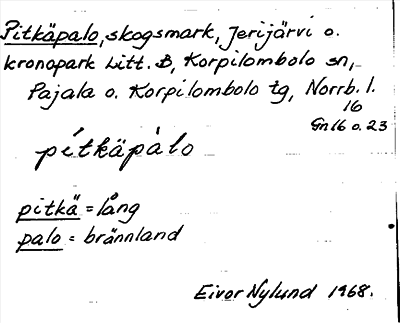 Pitkäpalo, skogsmark, Jerijärvi o.
kronopark Litt. B, Korpilombolo sn,
Pajala o. Korpilombolo tg, Norrb. l.
16
Gn16 o. 23
pítkäpàlo
pitkä = lång
palo = brännland
Eivor Nylund 1968.